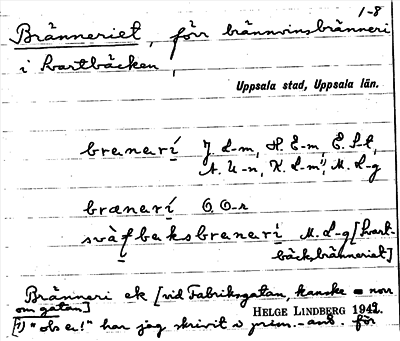 1-8
Bränneriet, förr brännvinsbränneri
i Svartbäcken,
Uppsala stad, Uppsala län.
branarí J. L-m, H. E-m, E. S-t,
A. U-n, K. L-m¹⁾, M. L-g
brænarí O. O-r
svàfbaksbranari M. L-g [Svart-
bäcksbränneriet]
Bränneri ek [vid Fabriksgatan, kanske norr
om gatan]
HELGE LINDBERG 1942.
¹⁾ "obs e!" har jag skrivit i prim.-ant. för